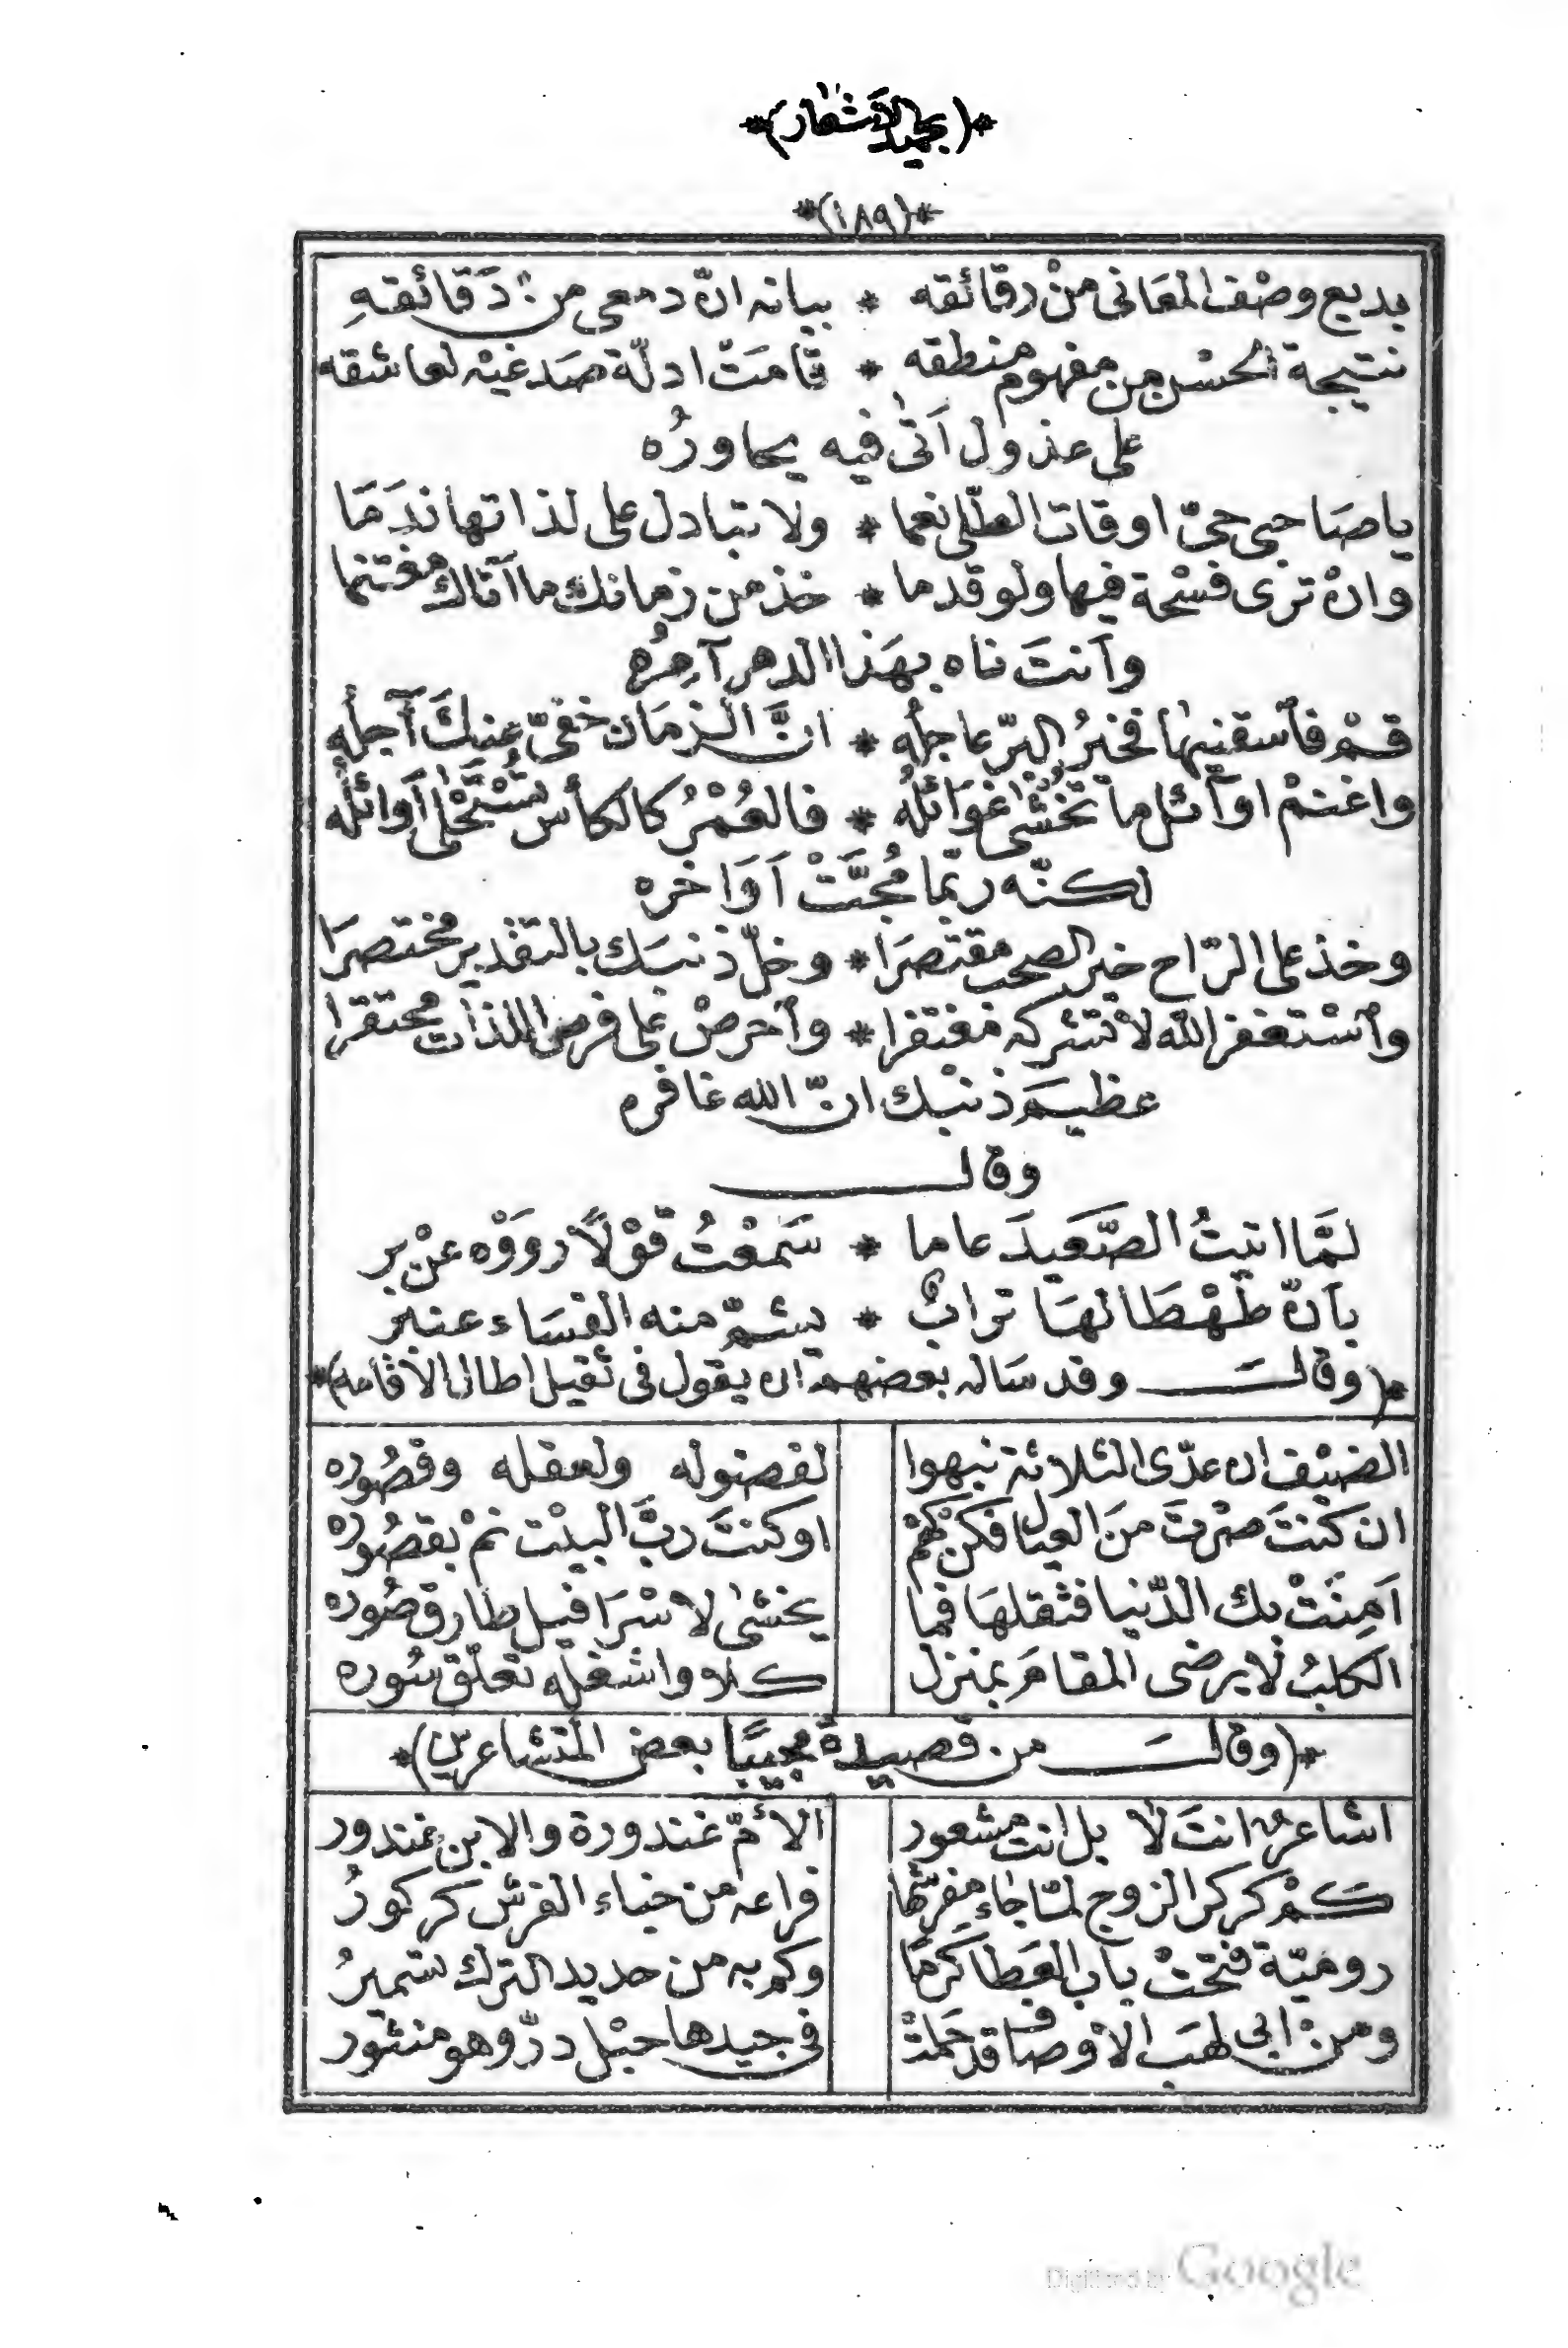 *(بحميد الأشعار)*
*(١٨٩)*
بديع وصْف المعَانى منْ رقائقه * بيانه انّ دمعى من دَقائقهِ
نتيجة الحسْن من مفهوم منطقه * قامَتْ ادلّة صَدغيْه لعاشقه
على عذول اَتىٰ فيه يحاورُه
ياصَاحبى حىّ اوقات الطلى نعما * ولا تبادل على لذاتها ندَمَا
وانْ ترى فسْحة فيها ولو قدما * خذ من زمانك ما آتاك مغتنما
واَنتَ ناه بهَذا الدهر آمِرُه
قمْ فاَسقنيهَا فخيرُ البرّ عاجلُه * انَّ الزمَان خفىّ عنكَ آجلُه
واغنمْ اوآئل ما تُخْشىٰ غوَائلُه * فالعُمْرُ كالكأس تُسْتَحْلىٰ اَوائلُه
لكنّه ربّما مُجَّتْ اَوَاخره
وخذ على الرّاح خير الصحب مقتصرَا * وخلّ ذنبَك بالتقدير مختصرَا
واَسْتغفر الله لا تتركه مفتقرا * واَحرصْ على فرص اللذات محتقرا
عظيمَ ذنبْك انّ الله غافره
وقالــــ
لمَّا اتيتُ الصَّعَيدَ عاما * سَمعْتُ قوْلًا رووْه عنْ بر
بآنّ طَهْطَا لهَا ترابٌ * يشمّ منه الفسَاء عنبر
*(وقالـــ وقد سَاله بعضهم ان يقول فى ثقيل اطال الاقامه)*
الضيْف ان عدّى الثلاثة نبهوا لفضوله ولعقله وقصُوره
ان كنتَ صرْتَ منَ العيال فكن كهمْ اوكنتَ ربَّ البيْت نمْ بقصُوره
اَمِنَتْ بك الدّنيا فثقلهَا فما يخشىٰ لاسْرَافيل طارق صُوره
الكلبُ لا يرضى المقامَ بمنزل كلا واشغله تعلّق سُوره
*(وقالــَ من قصيدة مجيبًا بعض المتشاعرين)*
اشاعر انتَ لاٰ بل انت مشعور الاُمّ غندورة والابن غندور
كمْ كركر الزوج لمّا جاء مفرشها فراعه من خباء الفرش كركورُ
روميّة فتحَتْ باب العَطا كرمًا وكم به من حديد الترك تسميرُ
ومنْ ابى لهَب الاوصاف قد حَملتْ فى جيدها حبْل درّ وهو منثور
Digitized by Google